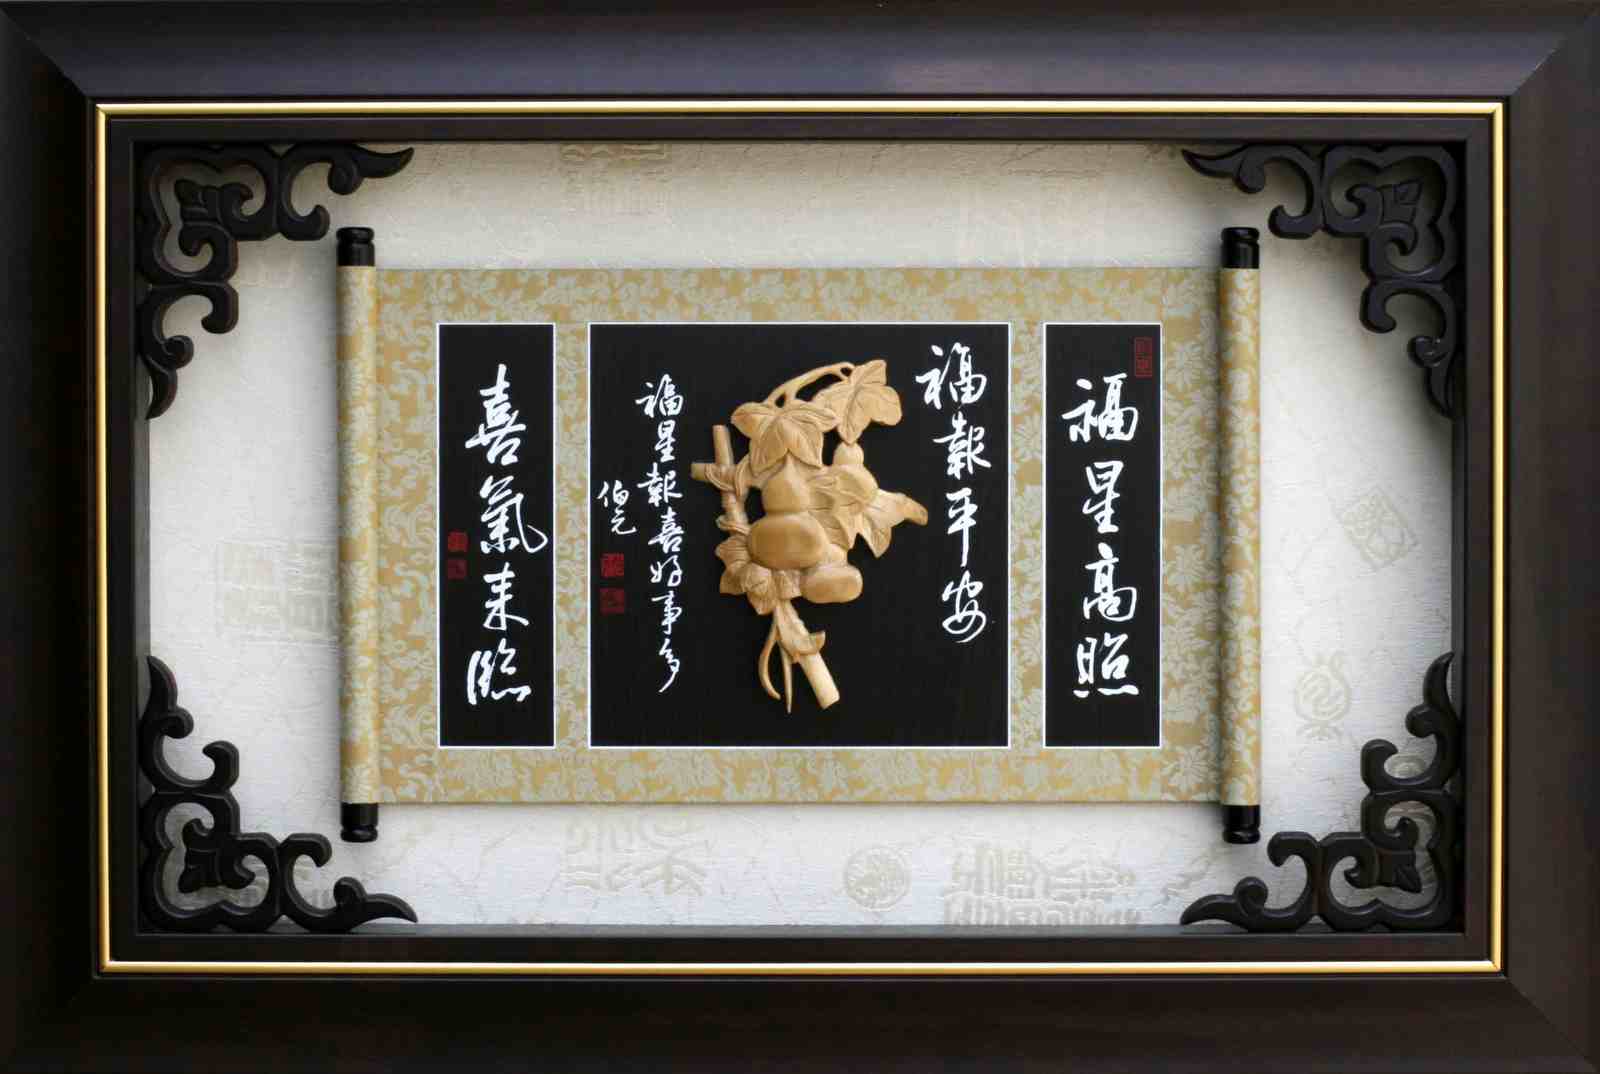 福星高照
福報平安
福星報喜好事多
伯元
喜氣来臨